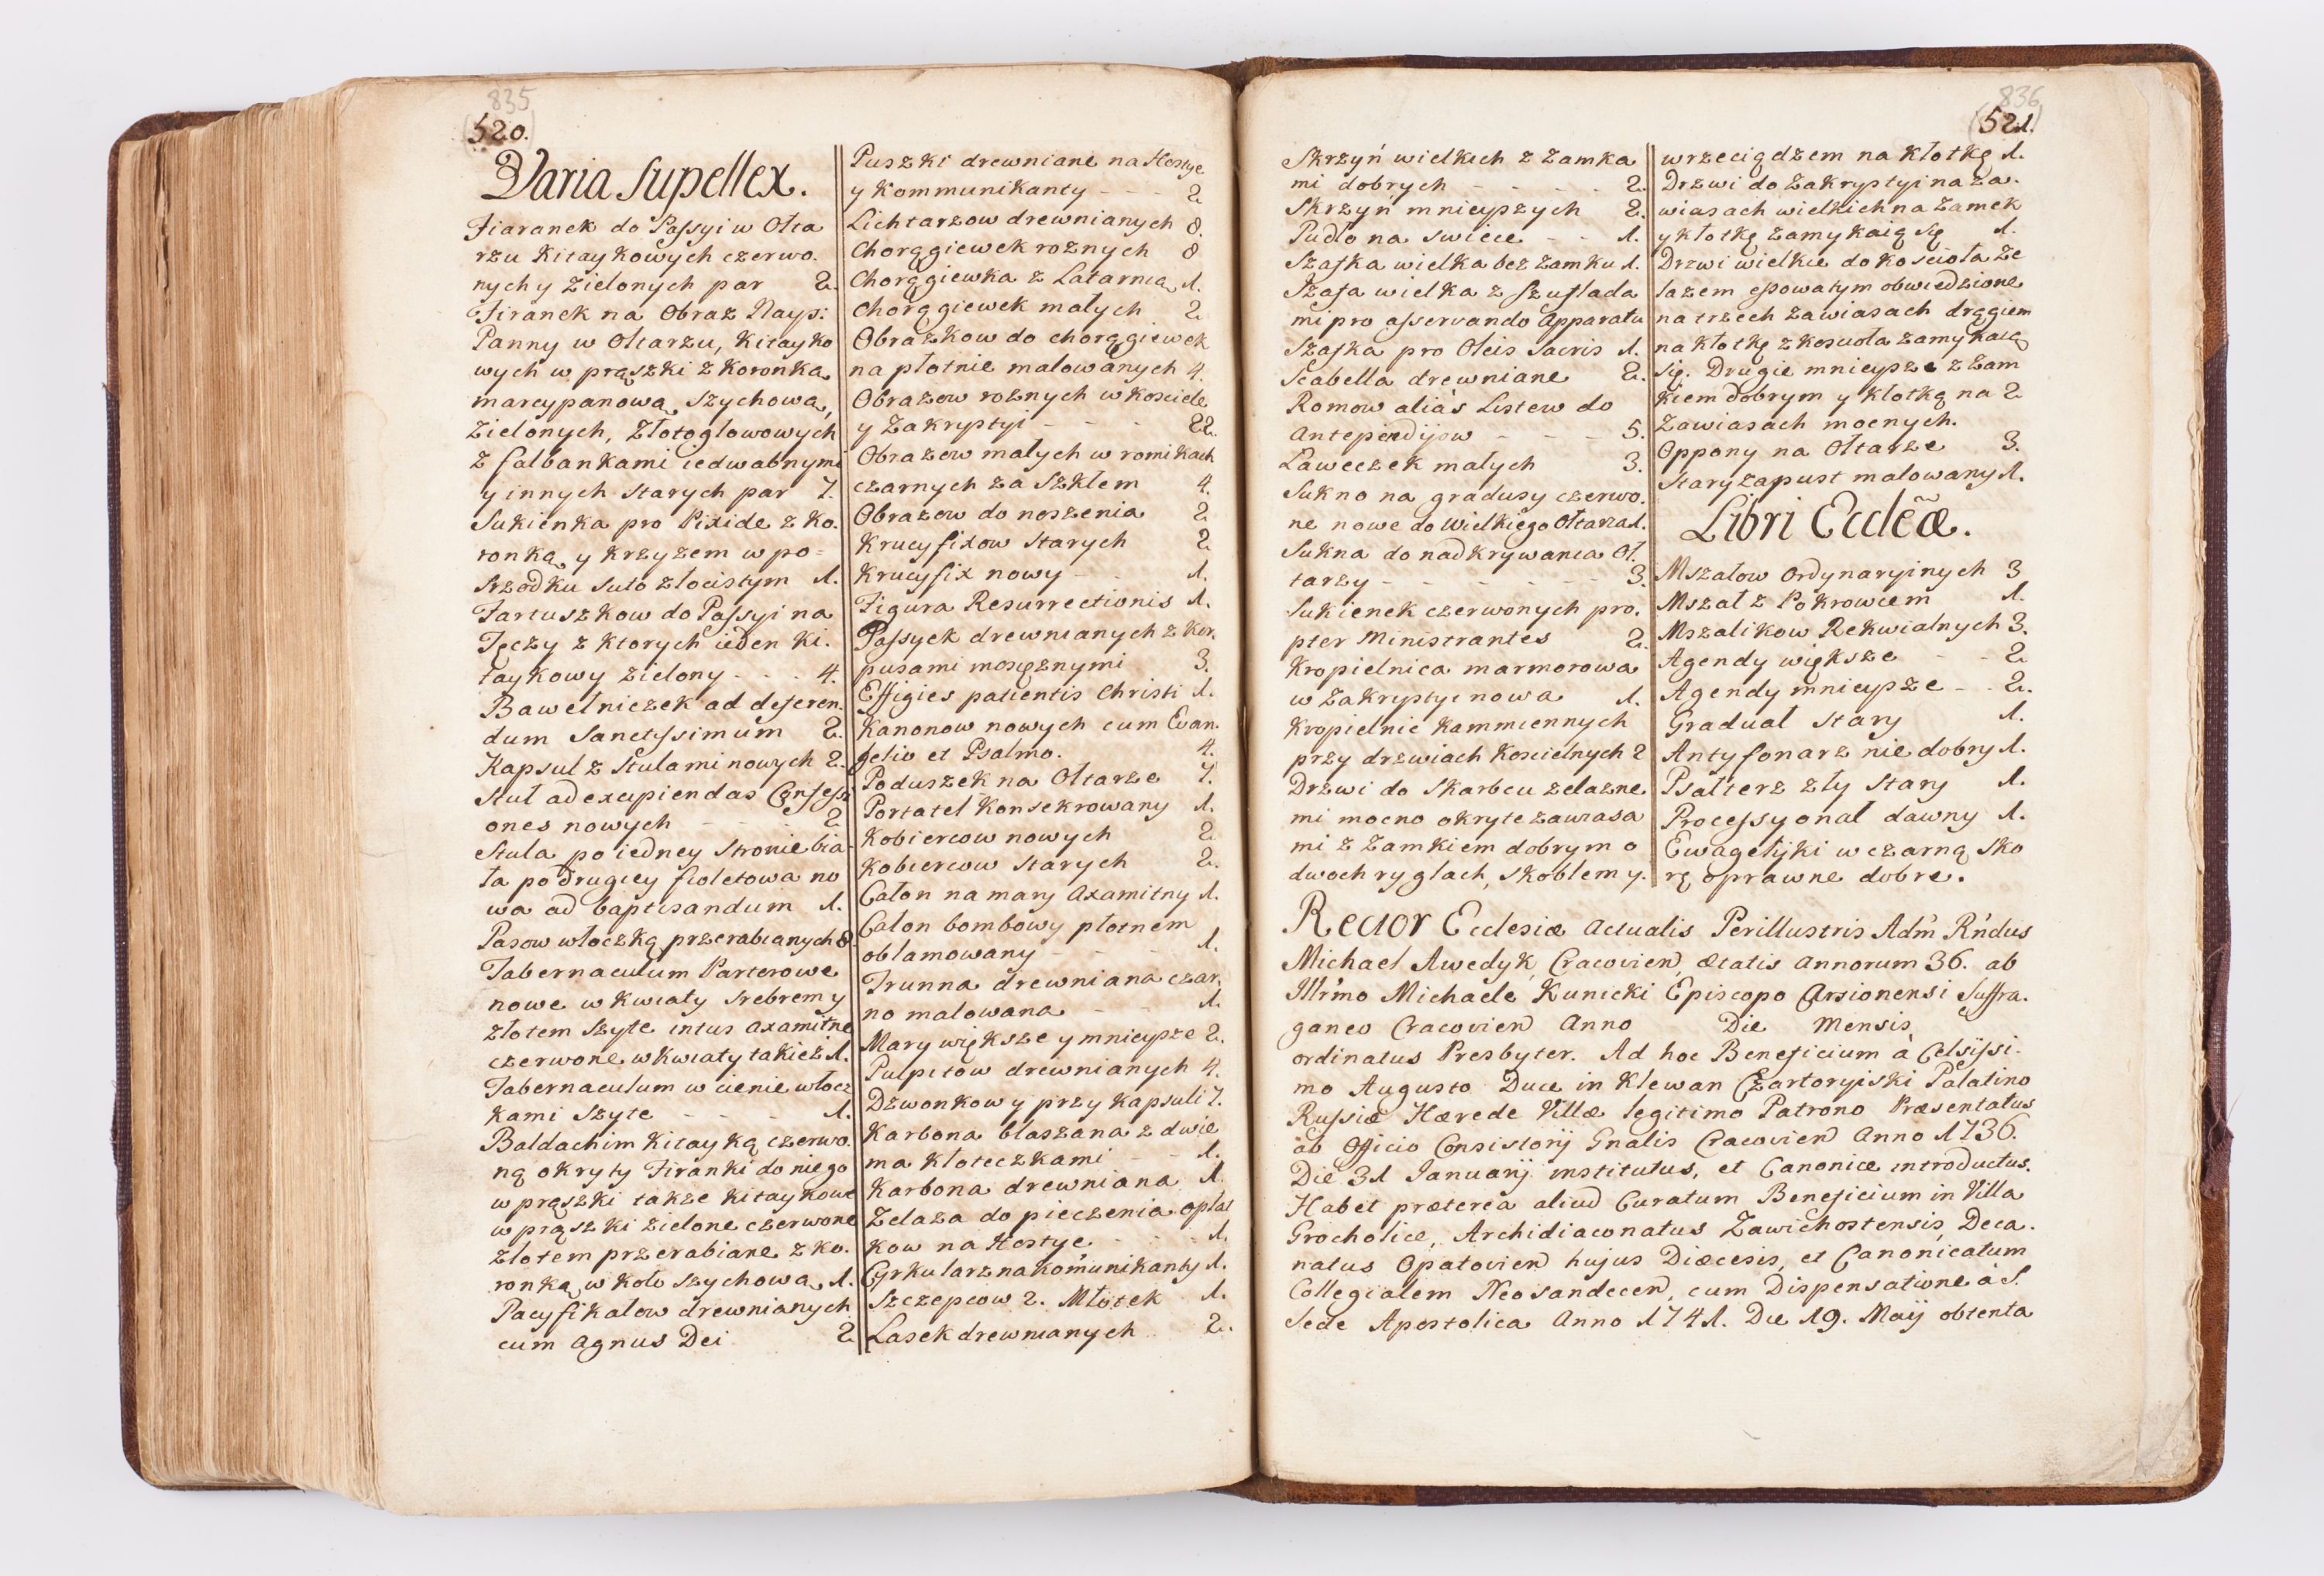 835
520.
Varia Supellex.
Firanek do Passyi w Ołta
rzu Kitaykowych czerwo.
nych y Zielonych par 2.
Firanek na Obraz Nayś:
Panny w Ołtarzu, Kitayko
wych w prąszki z Koronką
marcypanową Szychową,
Zielonych, Złotogłowowych
z falbankami iedwabnymi
y innych starych par 7.
Sukienka pro Pixide z Ko.
ronką y krzyżem w po=
srzodku suto złocistym 1.
Fartuszkow do Passyi na
Tęczy z ktorych ieden Ki.
taykowy zielony - - - 4.
Bawełniczek ad deferen.
dum Sanctissimum 2.
Kapsul z Stulami nowych 2.
Stuł ad excipiendas Confessi
ones nowych - - - 2
Stuła po iedney stronie bia
ła po drugiey fioletowa no
wa ad baptisandum 1.
Pasow włoczką przerabianych 8.
Tabernaculum Parterowe
nowe w kwiaty srebrem y
złotem szyte intus axamitne
czerwone w kwiaty takież 1.
Tabernaculum w cienie włocz
kami szyte - - - - 1.
Baldachim Kitayką czerwo.
ną okryty Firanki do niego
w prąszki także kitaykowe
w prąszki zielone czerwone
złotem przerabiane z ko.
ronką w koło szychową 1.
Pacyfikałow drewnianych
cum Agnus Dei 2
Puszki drewniane na Hostye
y Kommunikanty - - - 2
Lichtarzow drewnianych 8.
Chorągiewek rożnych 8
Chorągiewka z Latarnią 1.
Chorągiewek małych 2
Obrazkow do chorągiewek
na płotnie malowanych 4.
Obrazow rożnych w Kosciele
y Zakrystyi - - - - 22.
Obrazow małych w romikach
czarnych za Szkłem 4.
Obrazow do noszenia 2
Krucyfixow starych 2
Krucyfix nowy - - 1.
Figura Resurrectionis 1.
Passyek drewnianych z Kor.
pusami mosiężnymi 3.
Effigies patientis Christi 1.
Kanonow nowych cum Evan.
gelio et Psalmo. 4.
Poduszek na Ołtarze 7.
Portatel Konsekrowany 1.
Kobiercow nowych 2.
Kobiercow starych 2.
Całon na mary Axamitny 1.
Całon bombowy płotnem
oblamowany - - - - 1.
Trunna drewniana czar.
no malowana - - - 1.
Mary większe y mnieysze 2.
Pulpitow drewnianych 4.
Dzwonkow y przy kapsuli 7.
Karbona blaszana z dwie
ma kłoteczkami - - 1.
Karbona drewniana 1.
Zelaza do pieczenia opłat
kow na Hostye - - - - 1.
Cyrkularz na komunikanty 1.
Szczepcow 2. Młotek 1.
Lasek drewnianych 2.
836
521.
Skrzyń wielkich z Zamka
mi dobrych - - - - - 2.
Skrzyń mnieyszych 2.
Pudło na swiece - - 1.
Szafka wielka bez zamku 1.
Szafa wielka z Szuflada
mi pro asservando Apparatu
Szafka pro Oleis Sacris 1.
Scabella drewniane 2.
Romow aliàs Listew do
Antepedijow - - - 5.
Ławeczek małych 3.
Sukno na gradusy czerwo.
ne nowe do Wielkiego Ołtarza 1.
Sukna do nadkrywania Oł.
tarzy - - - - - - 3.
Sukienek czerwonych pro.
pter Ministrantes 2.
Kropielnica marmorowa
w Zakrystyi nowa 1.
Kropielnic kammiennych
przy drzwiach Koscielnych 2
Drzwi do Skarbcu zelazne.
mi mocno okryte zawiasa
mi z Zamkiem dobrym o
dwoch ryglach, skoblem y.
wrzeciądzem na Kłotkę 1.
Drzwi do Zakrystyi na za.
wiasach wielkich na Zamek
y kłotkę zamykaią się 1.
Drzwi wielkie do kosciola że
lazem essowatym obwiedzione
na trzech zawiasach drągiem
na kłotkę z kosciola zamykaią
się. Drugie mnieysze z Zam
kiem dobrym y kłotką na 2
Zawiasach mocnych.
Oppony na Ołtarze 3.
Stary zapust malowany 1.
Libri Ecclẽæ.
Mszałow Ordynaryinych 3
Mszał z Pokrowcem 1.
Mszalikow Rekwialnych 3.
Agendy większe - - 2
Agendy mnieysze - - 2.
Graduał stary 1.
Antyfonarz nie dobry 1.
Psałterz zły stary 1.
Processyonał dawny 1.
Ewagelijki w czarną sko
rę oprawne dobre.
Rector Ecclesiæ Actualis Perillustris Adm̃ Rńdus
Michael Awedyk, Cracovien, ætatis Annorum 36. ab
Illr̃mo Michaele Kunicki Episcopo Arsionensi Suffra.
ganeo Cracovien Anno Die Mensis
ordinatus Presbyter. Ad hoc Beneficium à Celsissi.
mo Augusto Duce in Klewan Czartoryiski Palatino
Russiæ Hærede Villæ legitimo Patrono Præsentatus
ab Officio Consistorij Gnalis Cracovien Anno 1736.
Die 31 Januarij institutus, et Canonice introductus.
Habet præterea aliud Curatum Beneficium in Villa
Grocholice, Archidiaconatus Zawichostensis, Deca.
natus Opatovien hujus Diæcesis, et Canonicatum
Collegialem Neosandecen, cum Dispensatione à S.
Sede Apostolica Anno 1741. Die 19. Maij obtenta